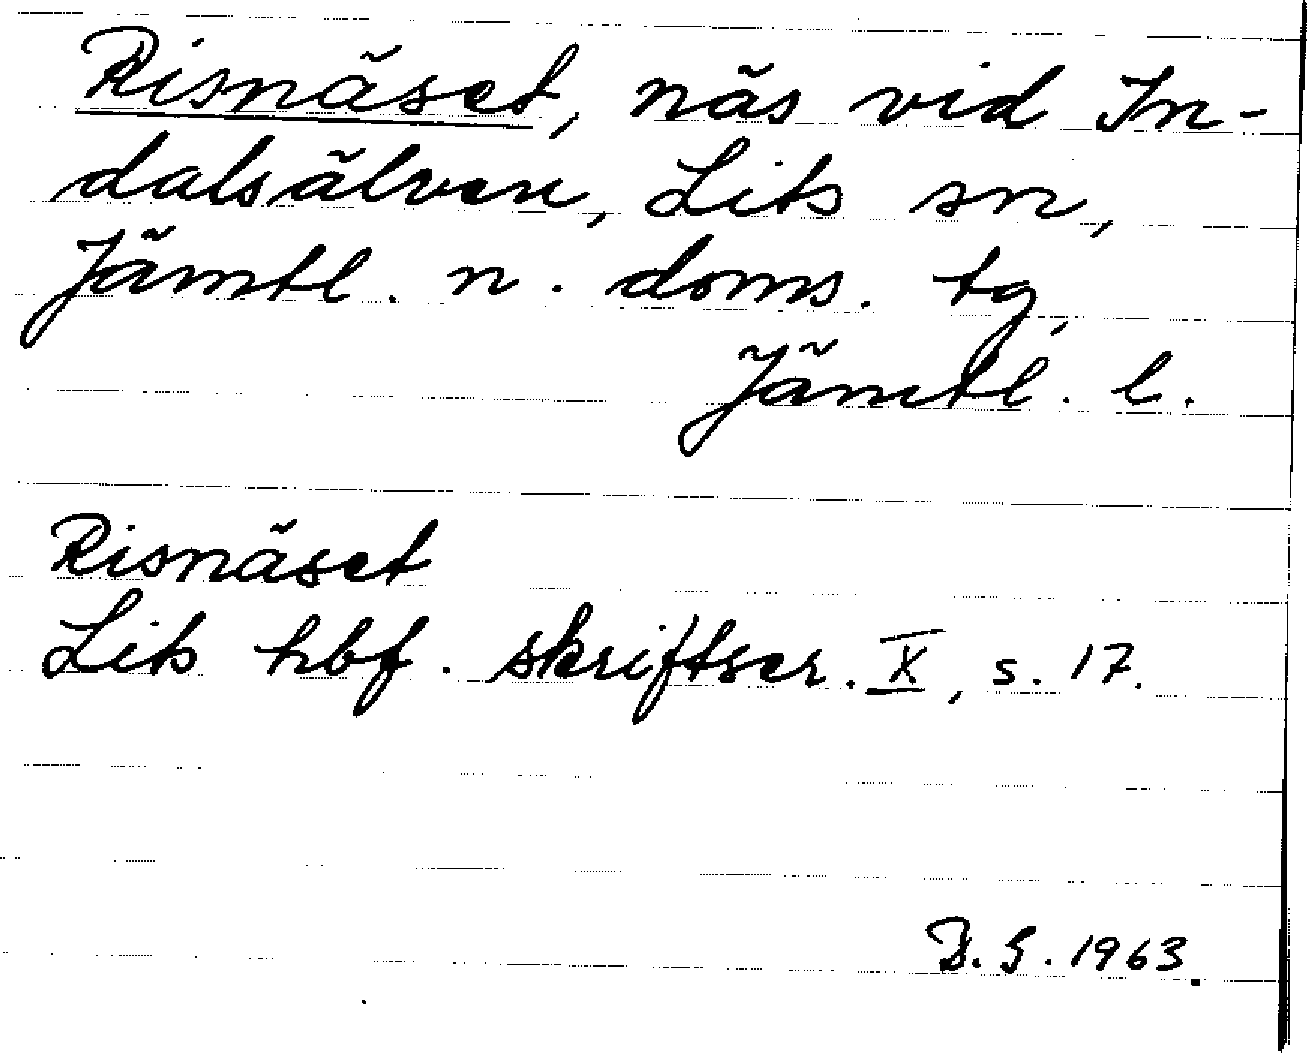 Risnäset, näs vid In-
dalsälven, Lits sn,
Jämtl. n. doms. tg,
Jämtl. l.
Risnäset
Lits hbf. skriftser. X, s. 17.
D. G. 1963.